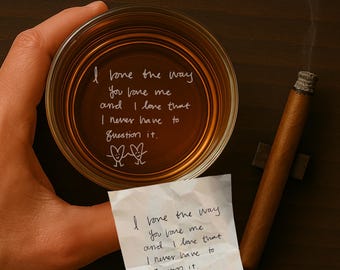 I love the way
you love me
and I love that
I never have to
question it.
I love the way
you love me
and I love that
I never have to
question it.